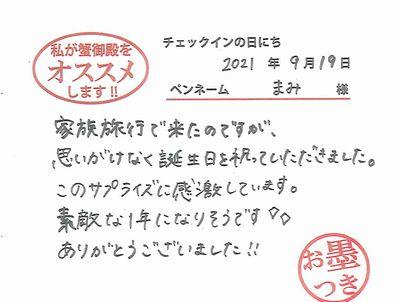 私が蟹御殿を
オススメ
します!!
チェックインの日にち
2021 年 9月19日
ペンネーム まみ 様
家族旅行で来たのですが、
思いがけなく誕生日を祝っていただきました。
このサプライズに感激しています。
素敵な1年になりそうです◇◇
ありがとうございました!!
お墨
つき